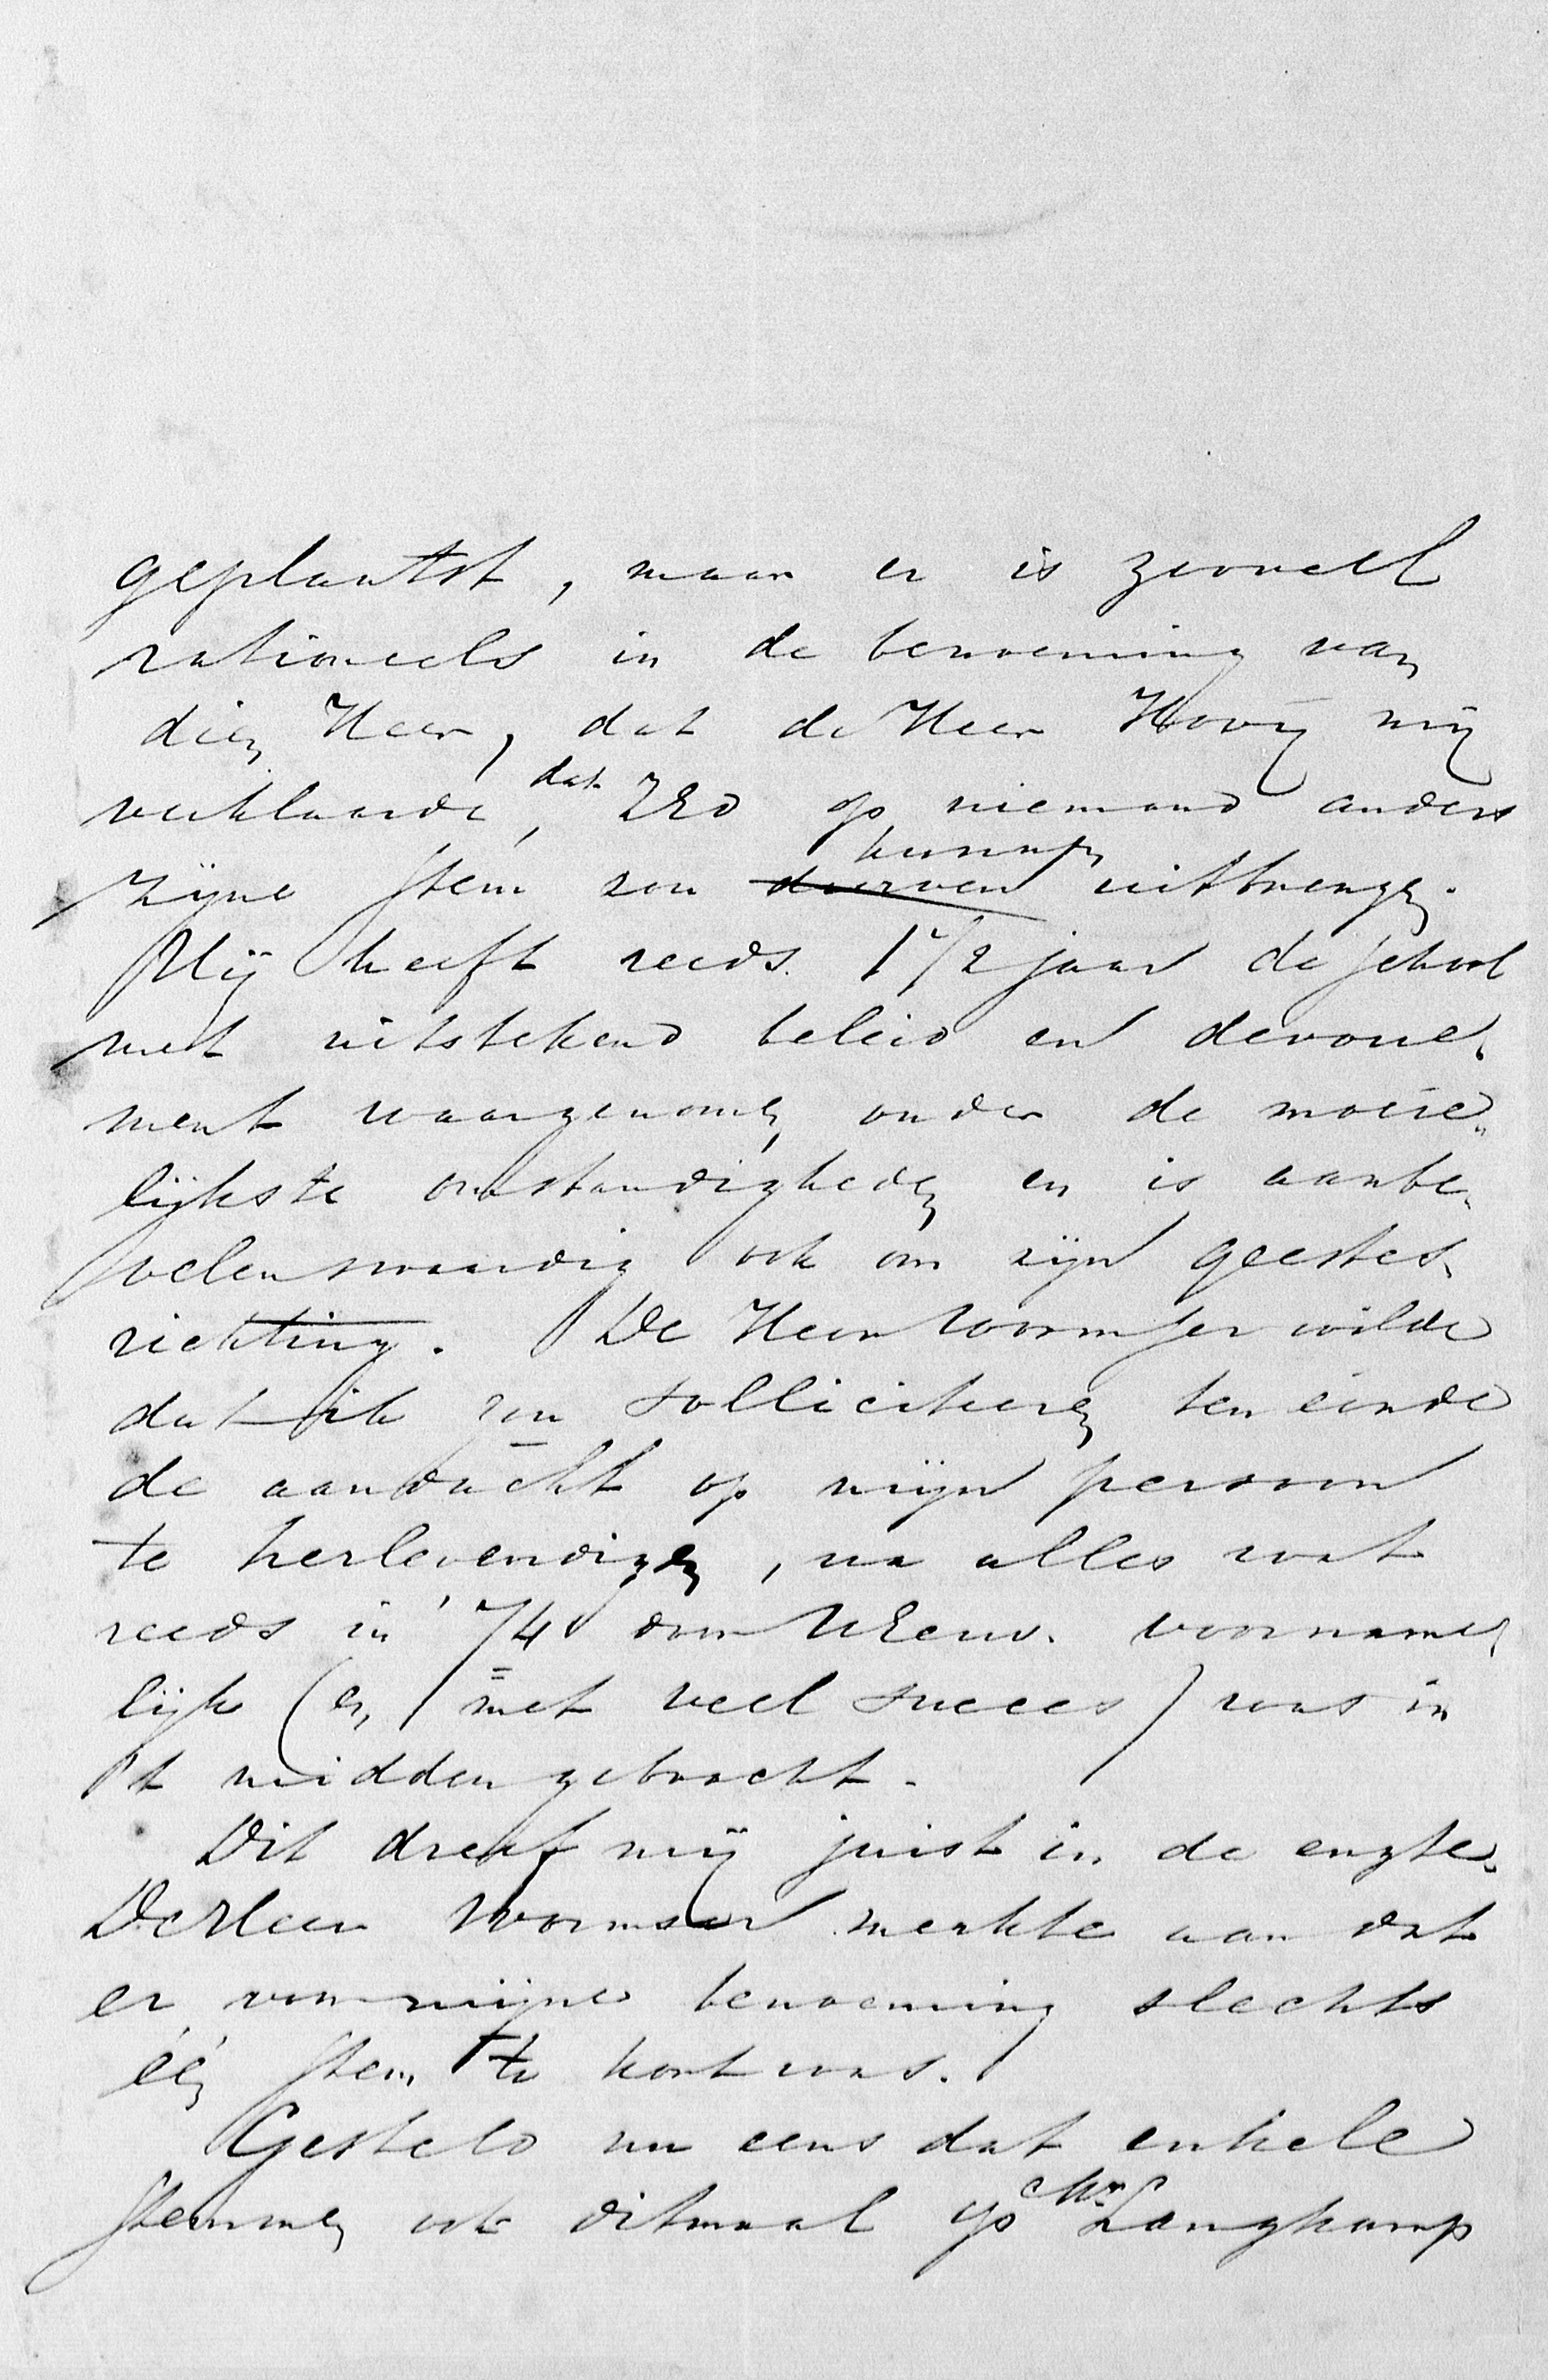 geplaatst, maar er is zooveel
rationeels in de benoeming van
dien Heer, dat de Heer Hovij mij
verklaarde, dat ZEd op niemand anders
zijne stem zou ~~durven~~ kunnen uitbrengen.
Hij heeft reeds 1 1/2 jaar de school
met uitstekend beleid en devoue-
ment waargenomen onder de moeie-
lijkste omstandigheden en is aanbe-
velenswaardig ook om zijn geestes-
richting. De Heer Wormser wilde
dat ik zou solliciteeren ten einde
de aandacht op mijn persoon
te verlevendigen, na alles wat
reeds in '74 door UEerw. voorname-
lijk (en met veel succes) was in
't midden gebracht.
Dit dreef mij juist in de engte.
De Heer Wormser merkte aan dat
er voor mijne benoeming slechts
één stem te kort was.
Gesteld nu eens dat enkele
stemmen ook ditmaal op Mr. Langkamp